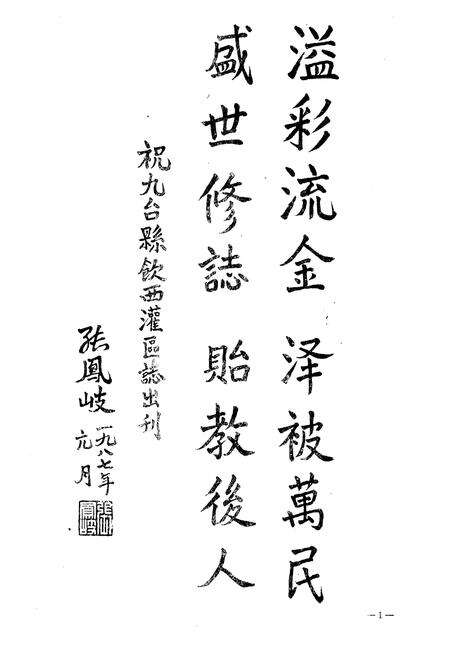 溢彩流金 泽被萬民
盛世修誌 貽教後人
祝九台縣飲西灌區誌出刊
張鳳岐
一九八七年
元月
—1—